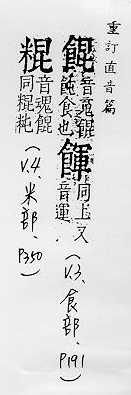 重訂直音篇
餛音魂餛飩食也餫同上又音運(V.3、食部、P191)
音魂餛同(V.4、米部、P350)